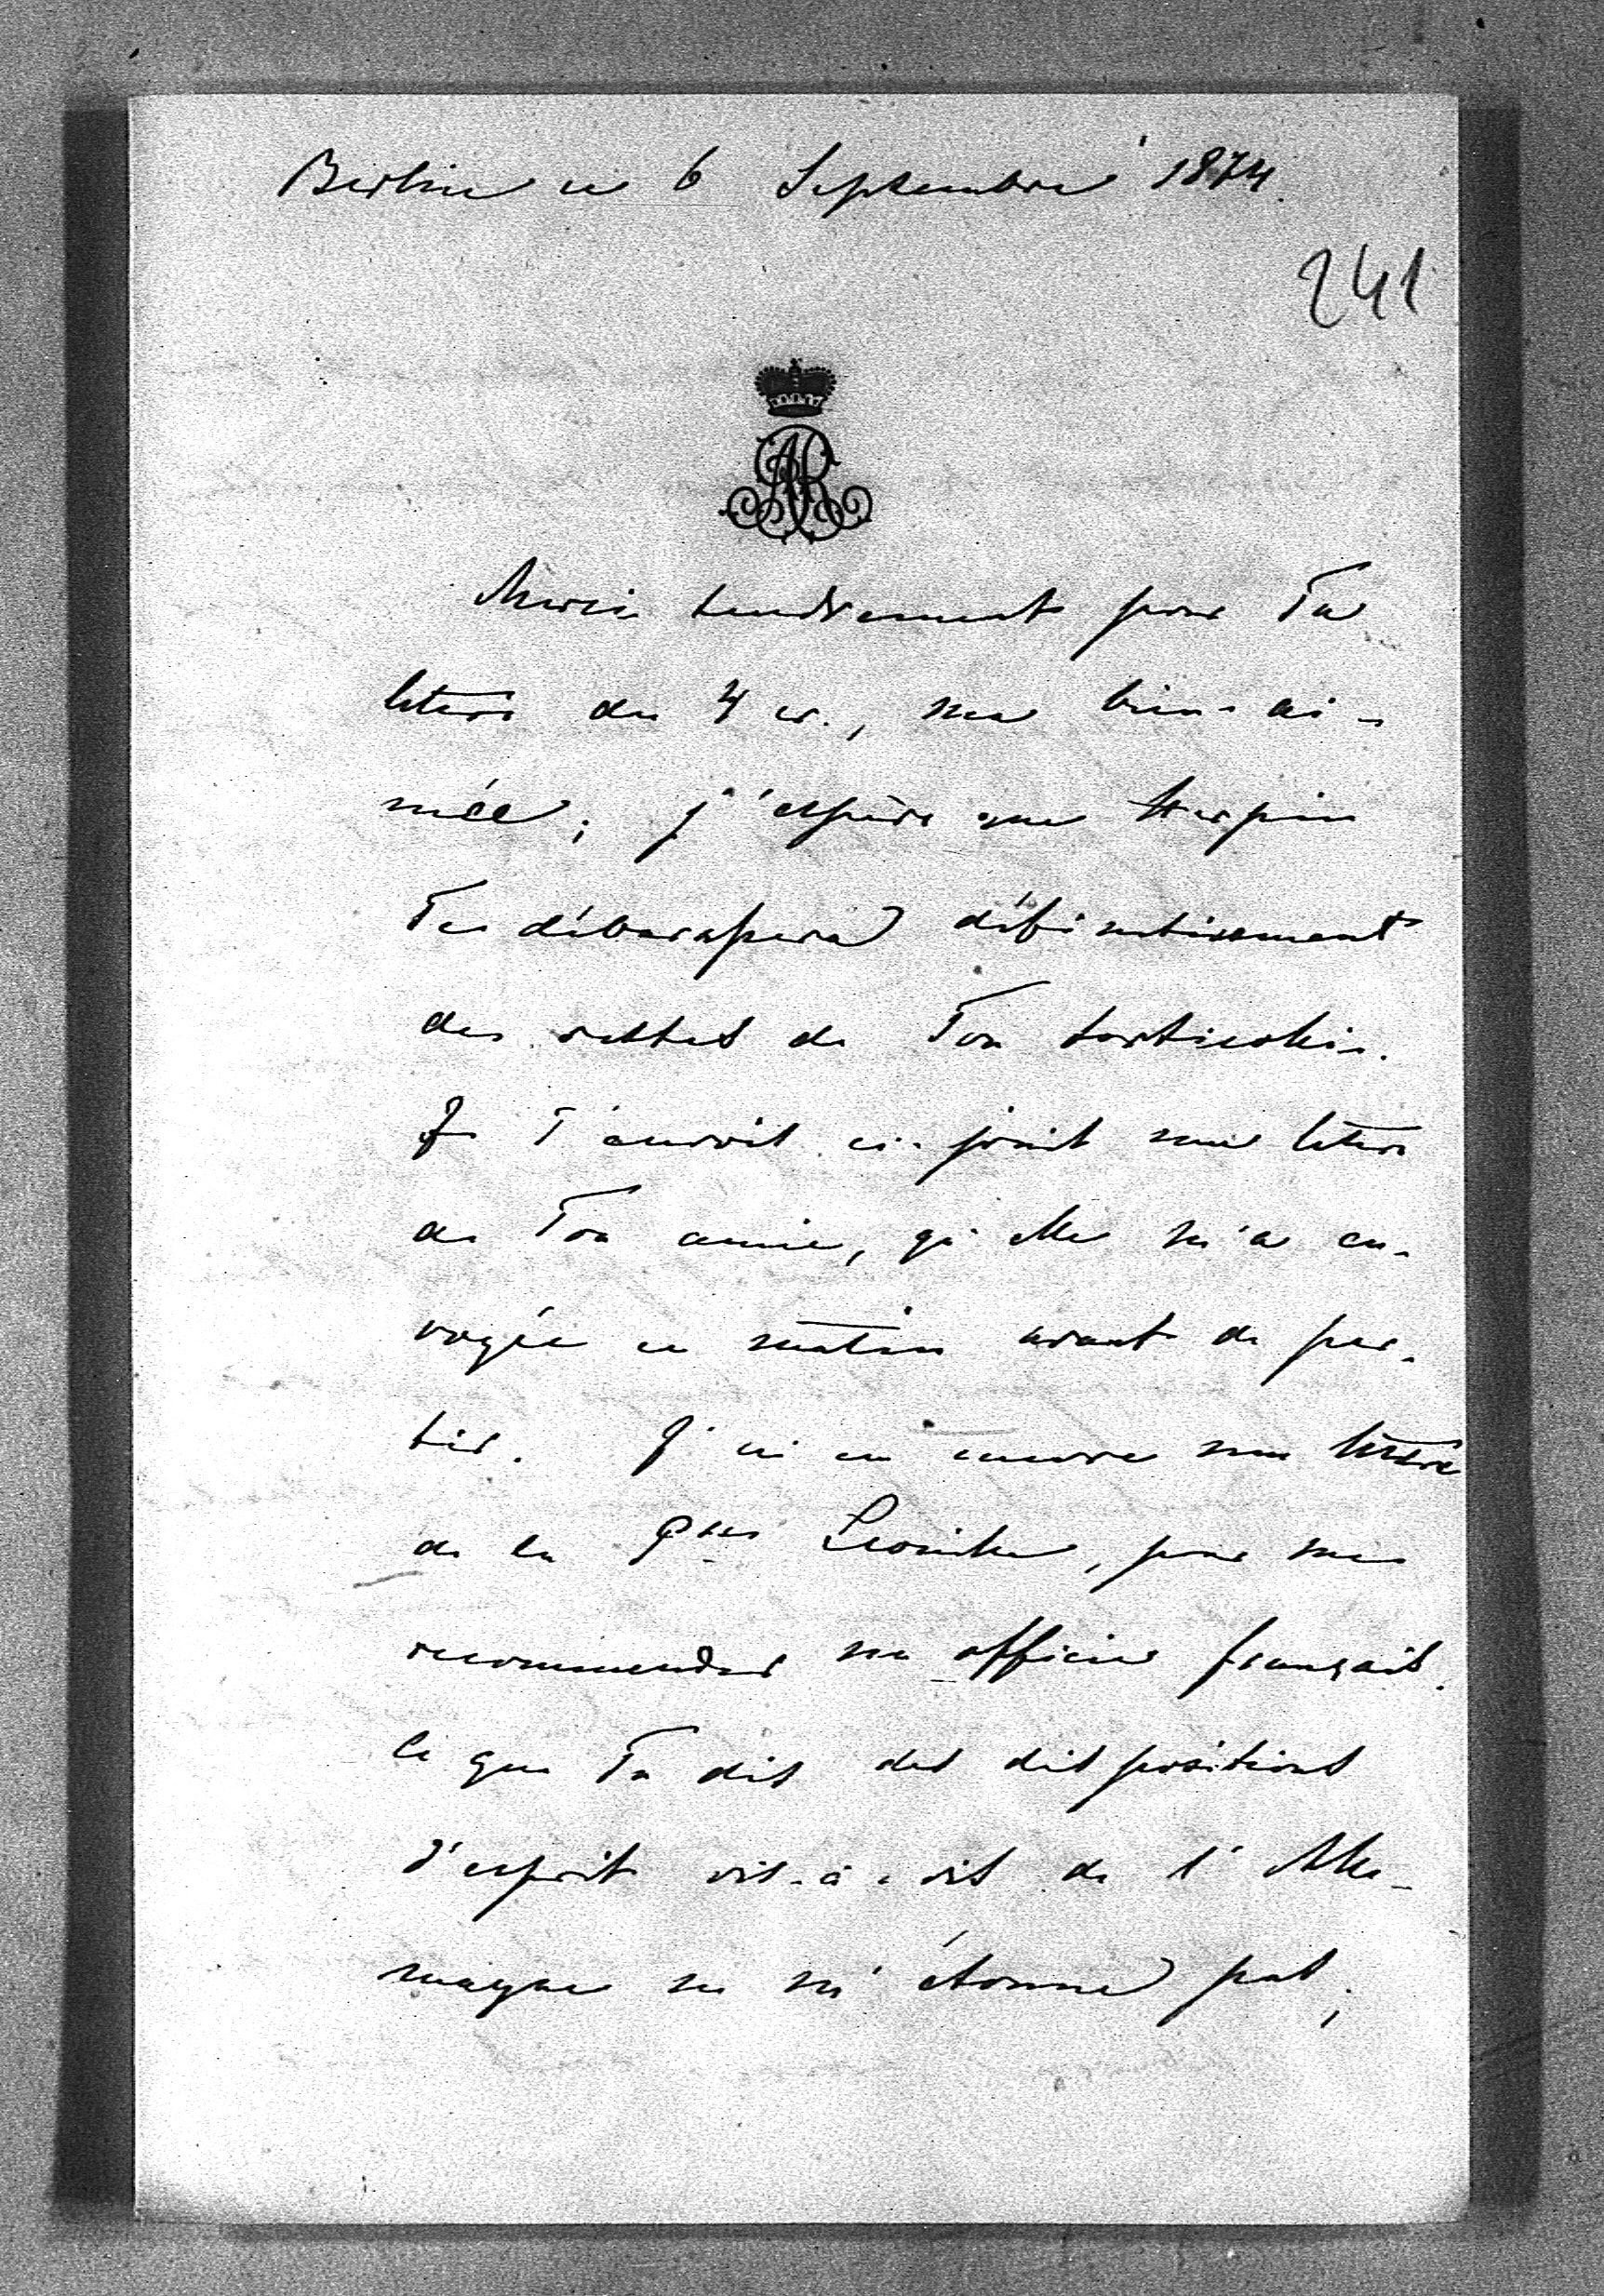 Berlin ce 6 Septembre 1874.
241
AR
Merci tendrement pour Ta
lettre du 4 cr., ma bien-ai-
mée; j'espère que
Te débarassera définitivement
des restes de Ton torticolis.
Je T'envoit ci-joint une lettre
de Ton amie, qu'elle m'a en-
voyée ce matin avant de par-
tir. J'ai eu encore une lettre
de la Psse, pour me
recommender un officier français.
Ce que Tu dis des dispositions
d'esprit vis-à-vis de l'Alle-
magne ne m'étonne pas;